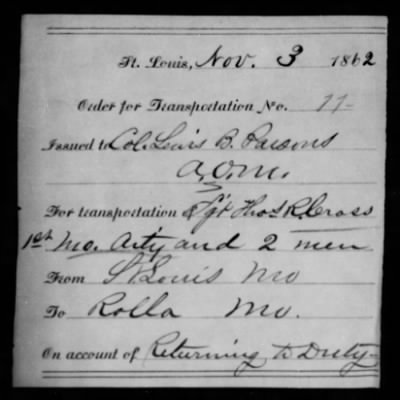 St. Louis, Nov. 3 1862
Order for Transportation No. 11
Issued to Col. Lewis B. Parsons
A.Q.M.
For transportation of Sgt Thos R. Cross
1st Mo. Arty and 2 men
From St Louis Mo
To Rolla Mo.
On account of Returning to Duty